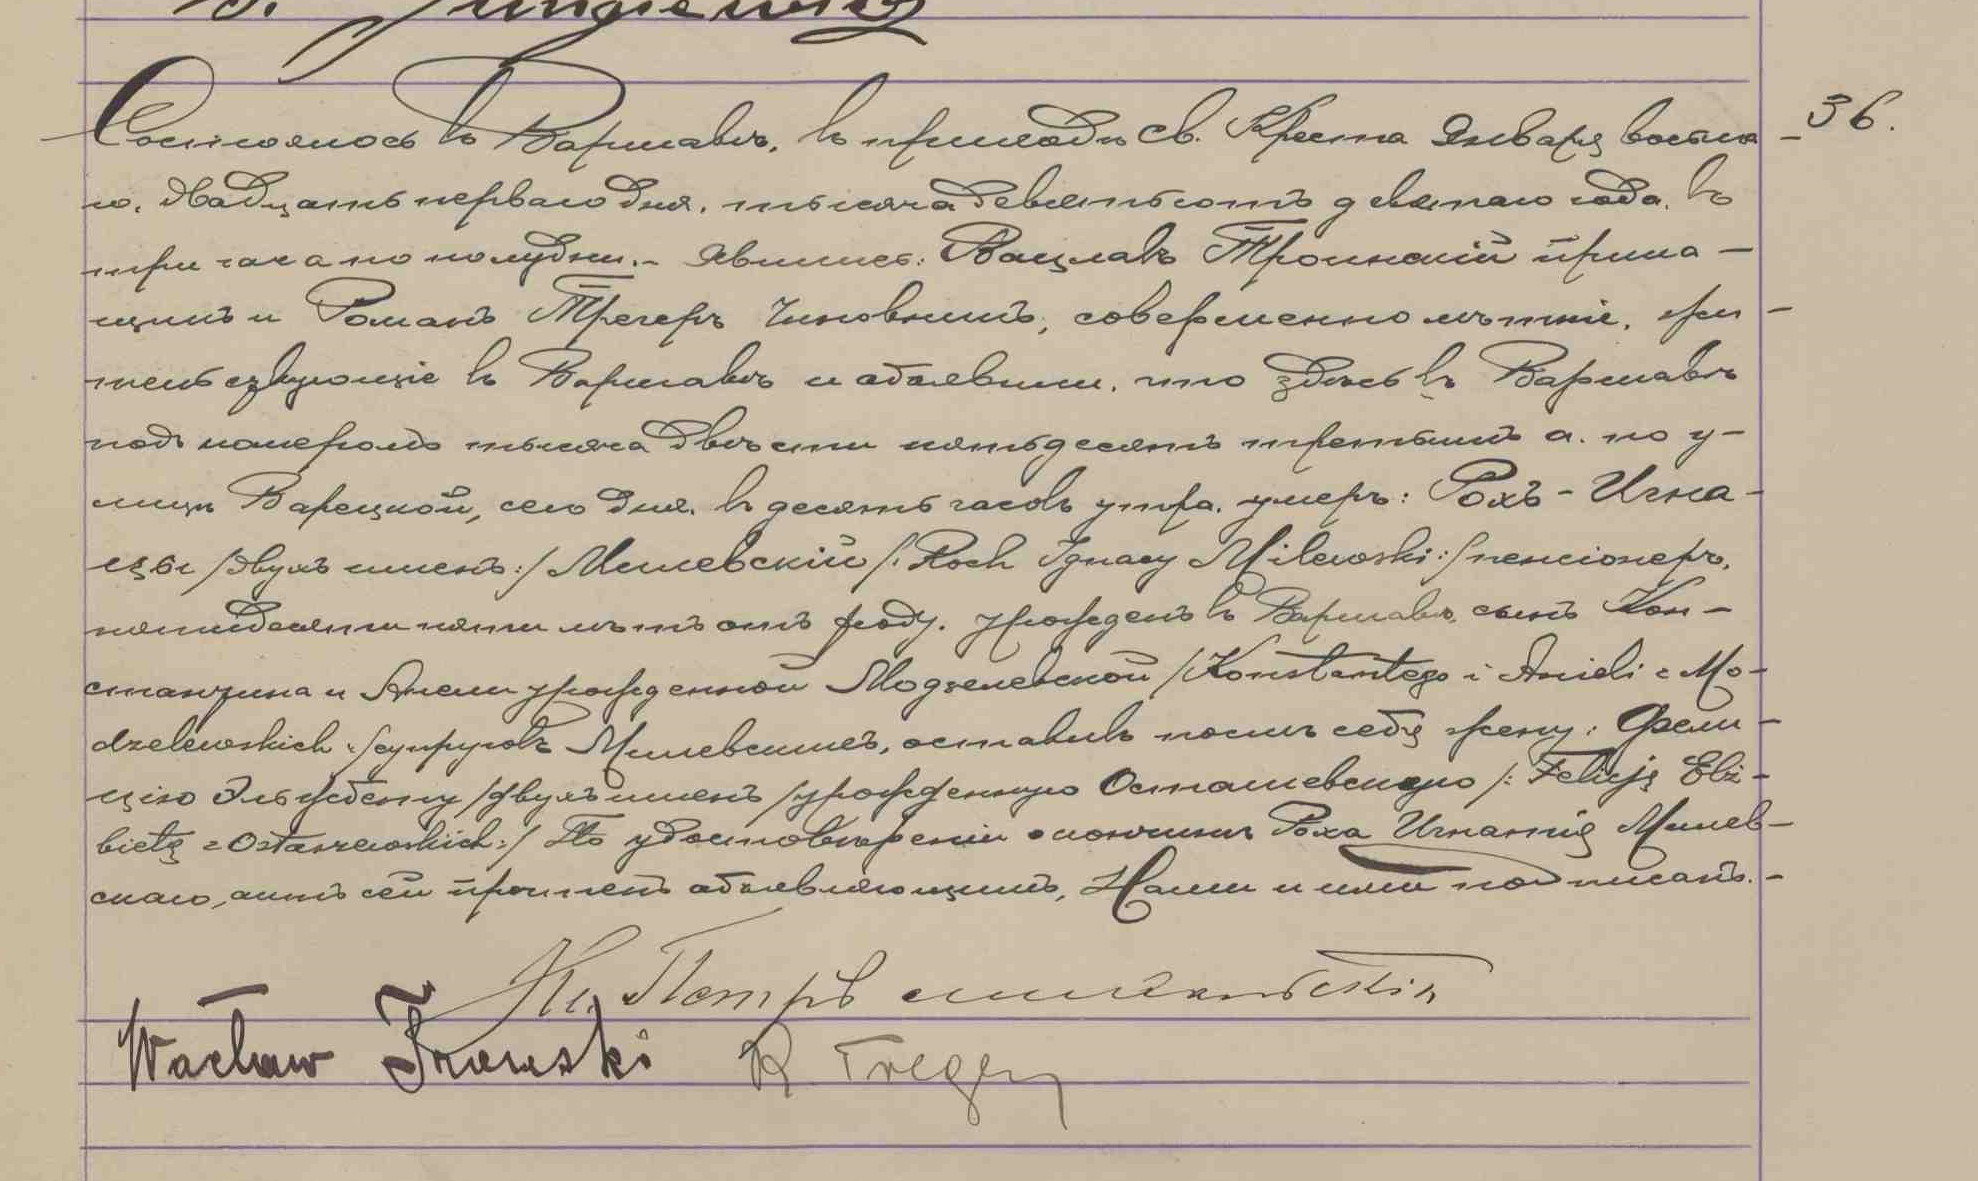 Jungiewicz
Состоялось въ Варшавѣ, въ приходѣ Св. Креста Января восьма- 36.
го, двадцать перваго дня, тысяча девятьсотъ девятаго года, въ
три часа по полудни. – Явились: Вацлавъ Троинскій прика-
щикъ и Романъ Трегеръ чиновникъ, совершеннолѣтніе, жи-
тельствующіе въ Варшавѣ и объявили, что здѣсь въ Варшавѣ
подъ номеромъ тысяча двѣсти пятьдесятъ третьимъ а. по у-
лицѣ Варецкой, сего дня, въ десять часовъ утра, умеръ: Рохъ-Игна-
цы /двухъ именъ:/ Милевскій /:Roch Ignacy Milewski:/ пенсіонеръ,
пятидесяти пяти лѣтъ отъ роду, урожденъ въ Варшавѣ, сынъ Кон-
стантина и Анели урожденной Модзелевской /:Konstantego i Anieli z Mo-
dzelewskich:/ супруговъ Милевскихъ, оставивъ послѣ себя жену: Фели-
цію Эльжбету /двухъ именъ/ урожденную Осташевскую /: Felicję Elż-
bietę z Ostaszewskich:/ По удостовѣреніи о кончинѣ Роха Игнатія Милев-
скаго, актъ сей прочтенъ объявляющимъ, Нами и ими подписанъ. –
Кс. Петръ
Wacław R Treger